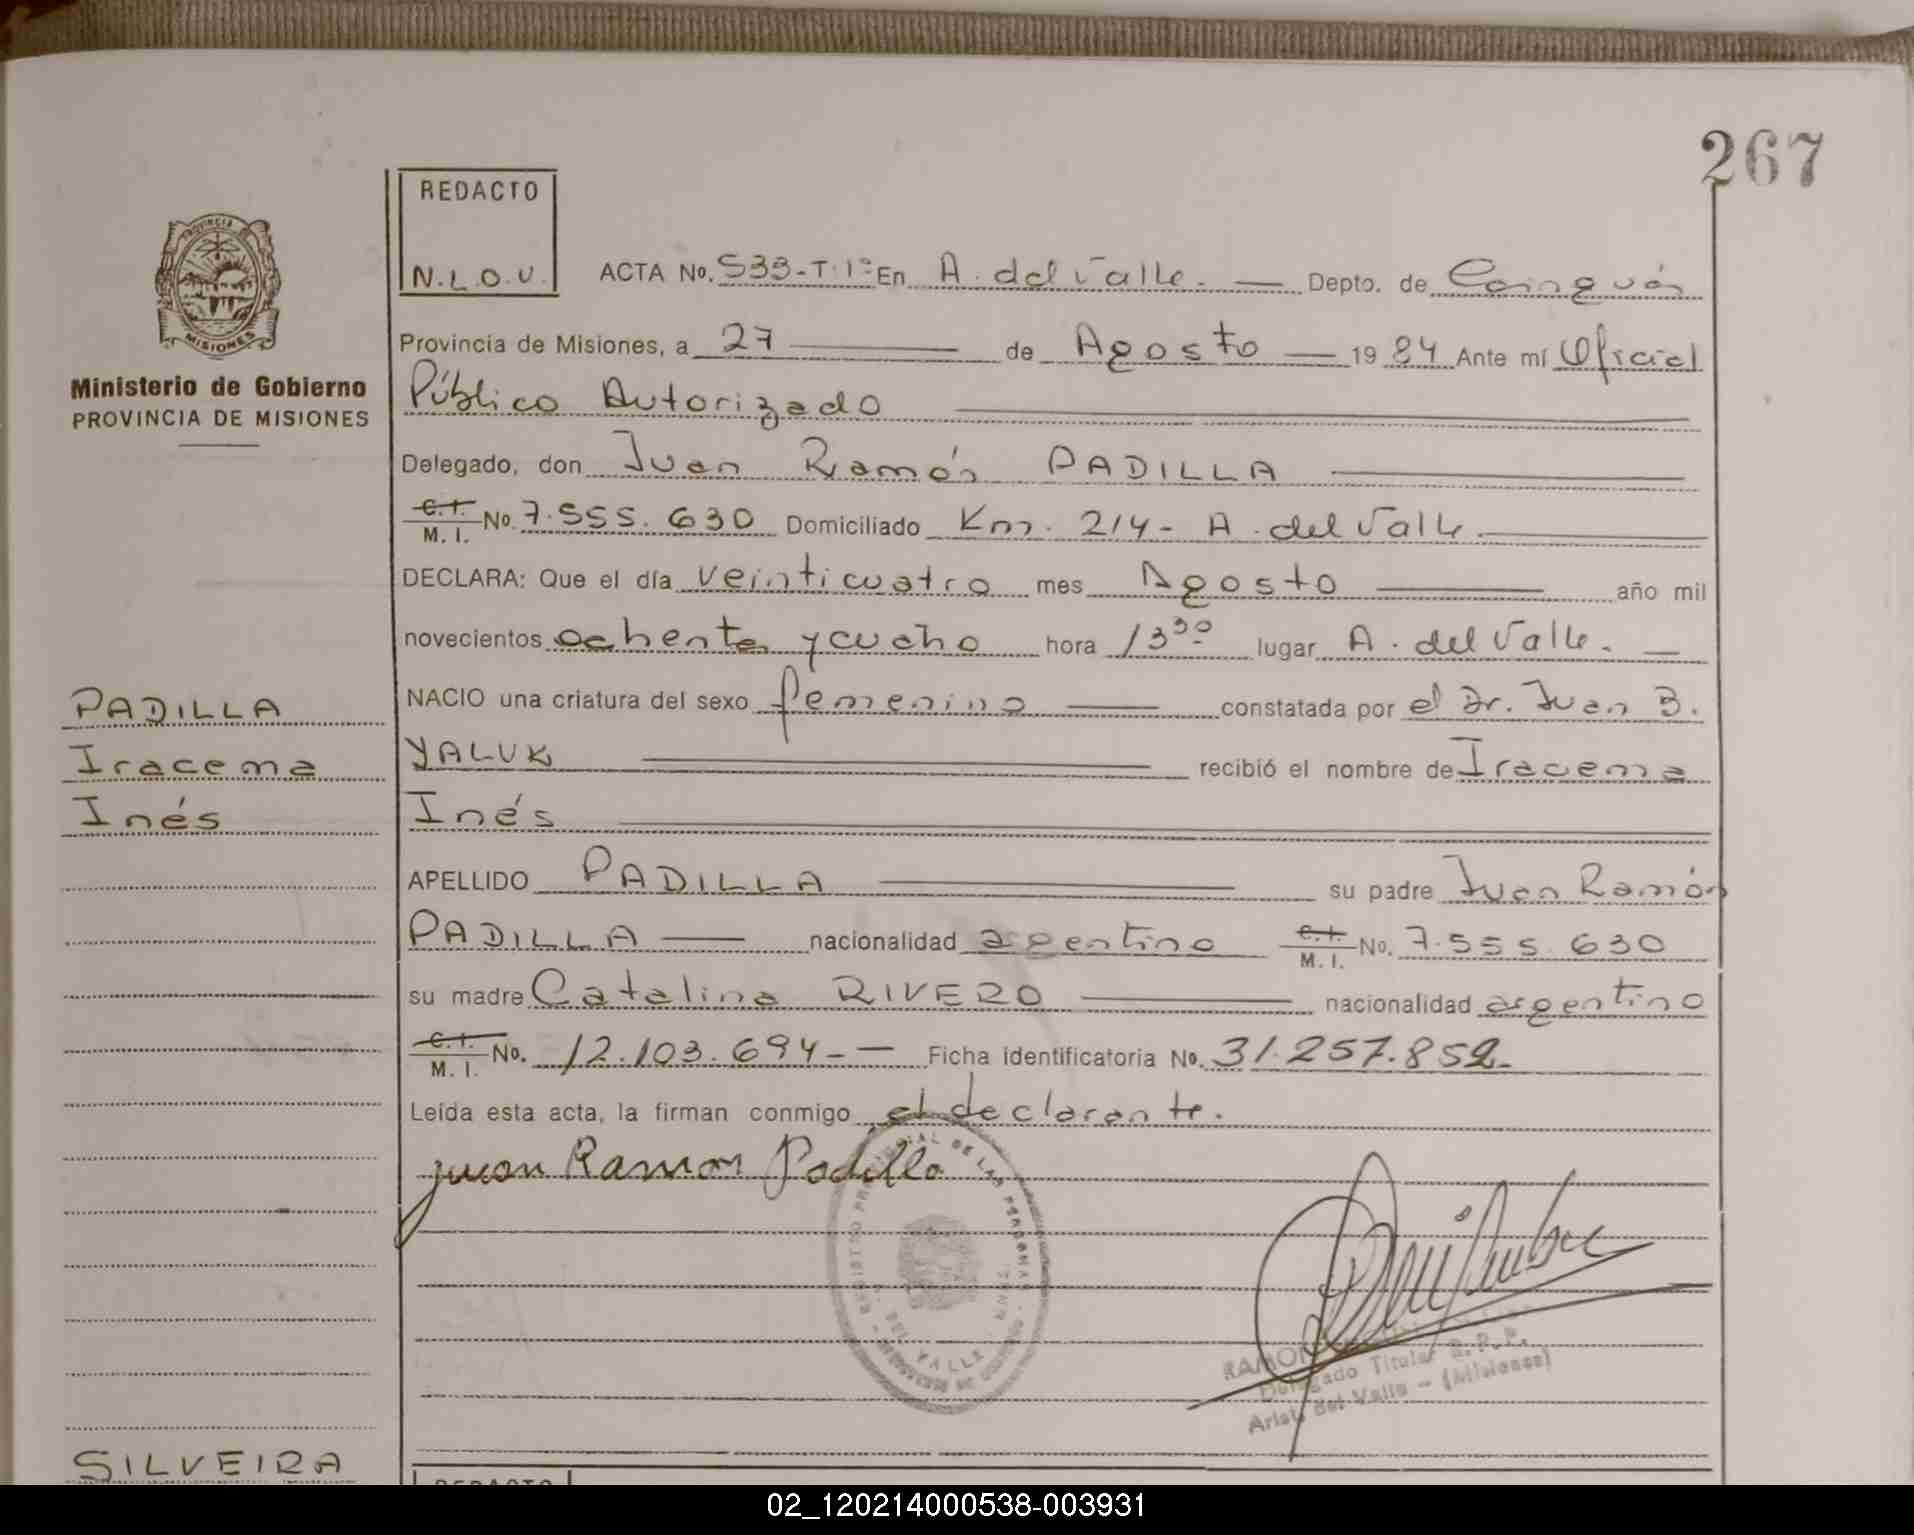 267
REDACTO
N.L.O.V.
PROVINCIA DE
MISIONES
Ministerio de Gobierno
PROVINCIA DE MISIONES
ACTA No. 533-T:1º En A. del Valle. — Depto. de Cainguás
Provincia de Misiones, a 27 — de Agosto — 19 84 Ante mí Oficial
Público Autorizado
Delegado, don Juan Ramón PADILLA
C.I. M.I. No. 7.555.630 Domiciliado Km. 214- A. del Valle
DECLARA: Que el día veinticuatro mes Agosto — año mil
novecientos ochenta y cucho hora 13³⁰ lugar A. del Valle. —
NACIO una criatura del sexo femenino — constatada por el Dr. Juan B.
YALUK — recibió el nombre de Iracema
Inés
APELLIDO PADILLA — su padre Juan Ramón
PADILLA — nacionalidad argentino C.I. M.I. No. 7.555.630
su madre Catalina RIVERO — nacionalidad argentino
C.I. M.I. No. 12.103.694-— Ficha identificatoria No. 31.257.852-
Leída esta acta, la firman conmigo el declarante.
juan Ramon Padilla
PADILLA
Iracema
Inés
RAMON
Delegado Titular R.P.P.
Arist. del Valle - (Misiones)
SILVEIRA
REDACTO
02_120214000538-003931